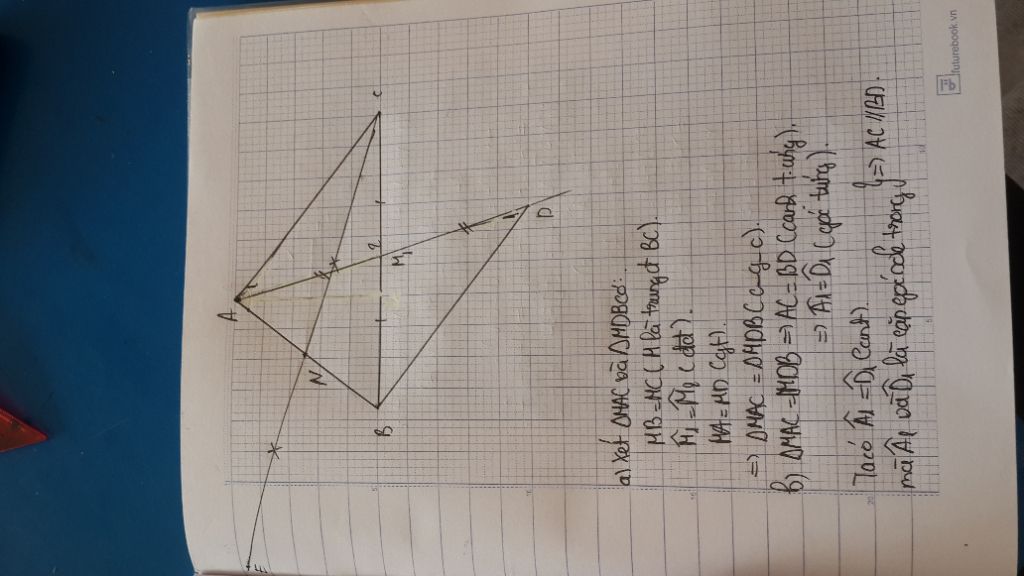 A
E
N
B
C
M
1
2
D
1
a) Xét ΔMAC và ΔMDB có:
MB = MC (M là trung đ BC).
M̂1 = M̂2 (đđ).
MA = MD (gt).
=> ΔMAC = ΔMDB (c-g-c).
b) ΔMAC = ΔMDB => AC = BD (cạnh t.ứng).
=> Â1 = D̂1 (góc tứng).
Ta có Â1 = D̂1 (cmt)
mà Â1 và D̂1 là cặp góc sole trong } => AC // BD.
5
10
15
20
5
10
futurebook.vn